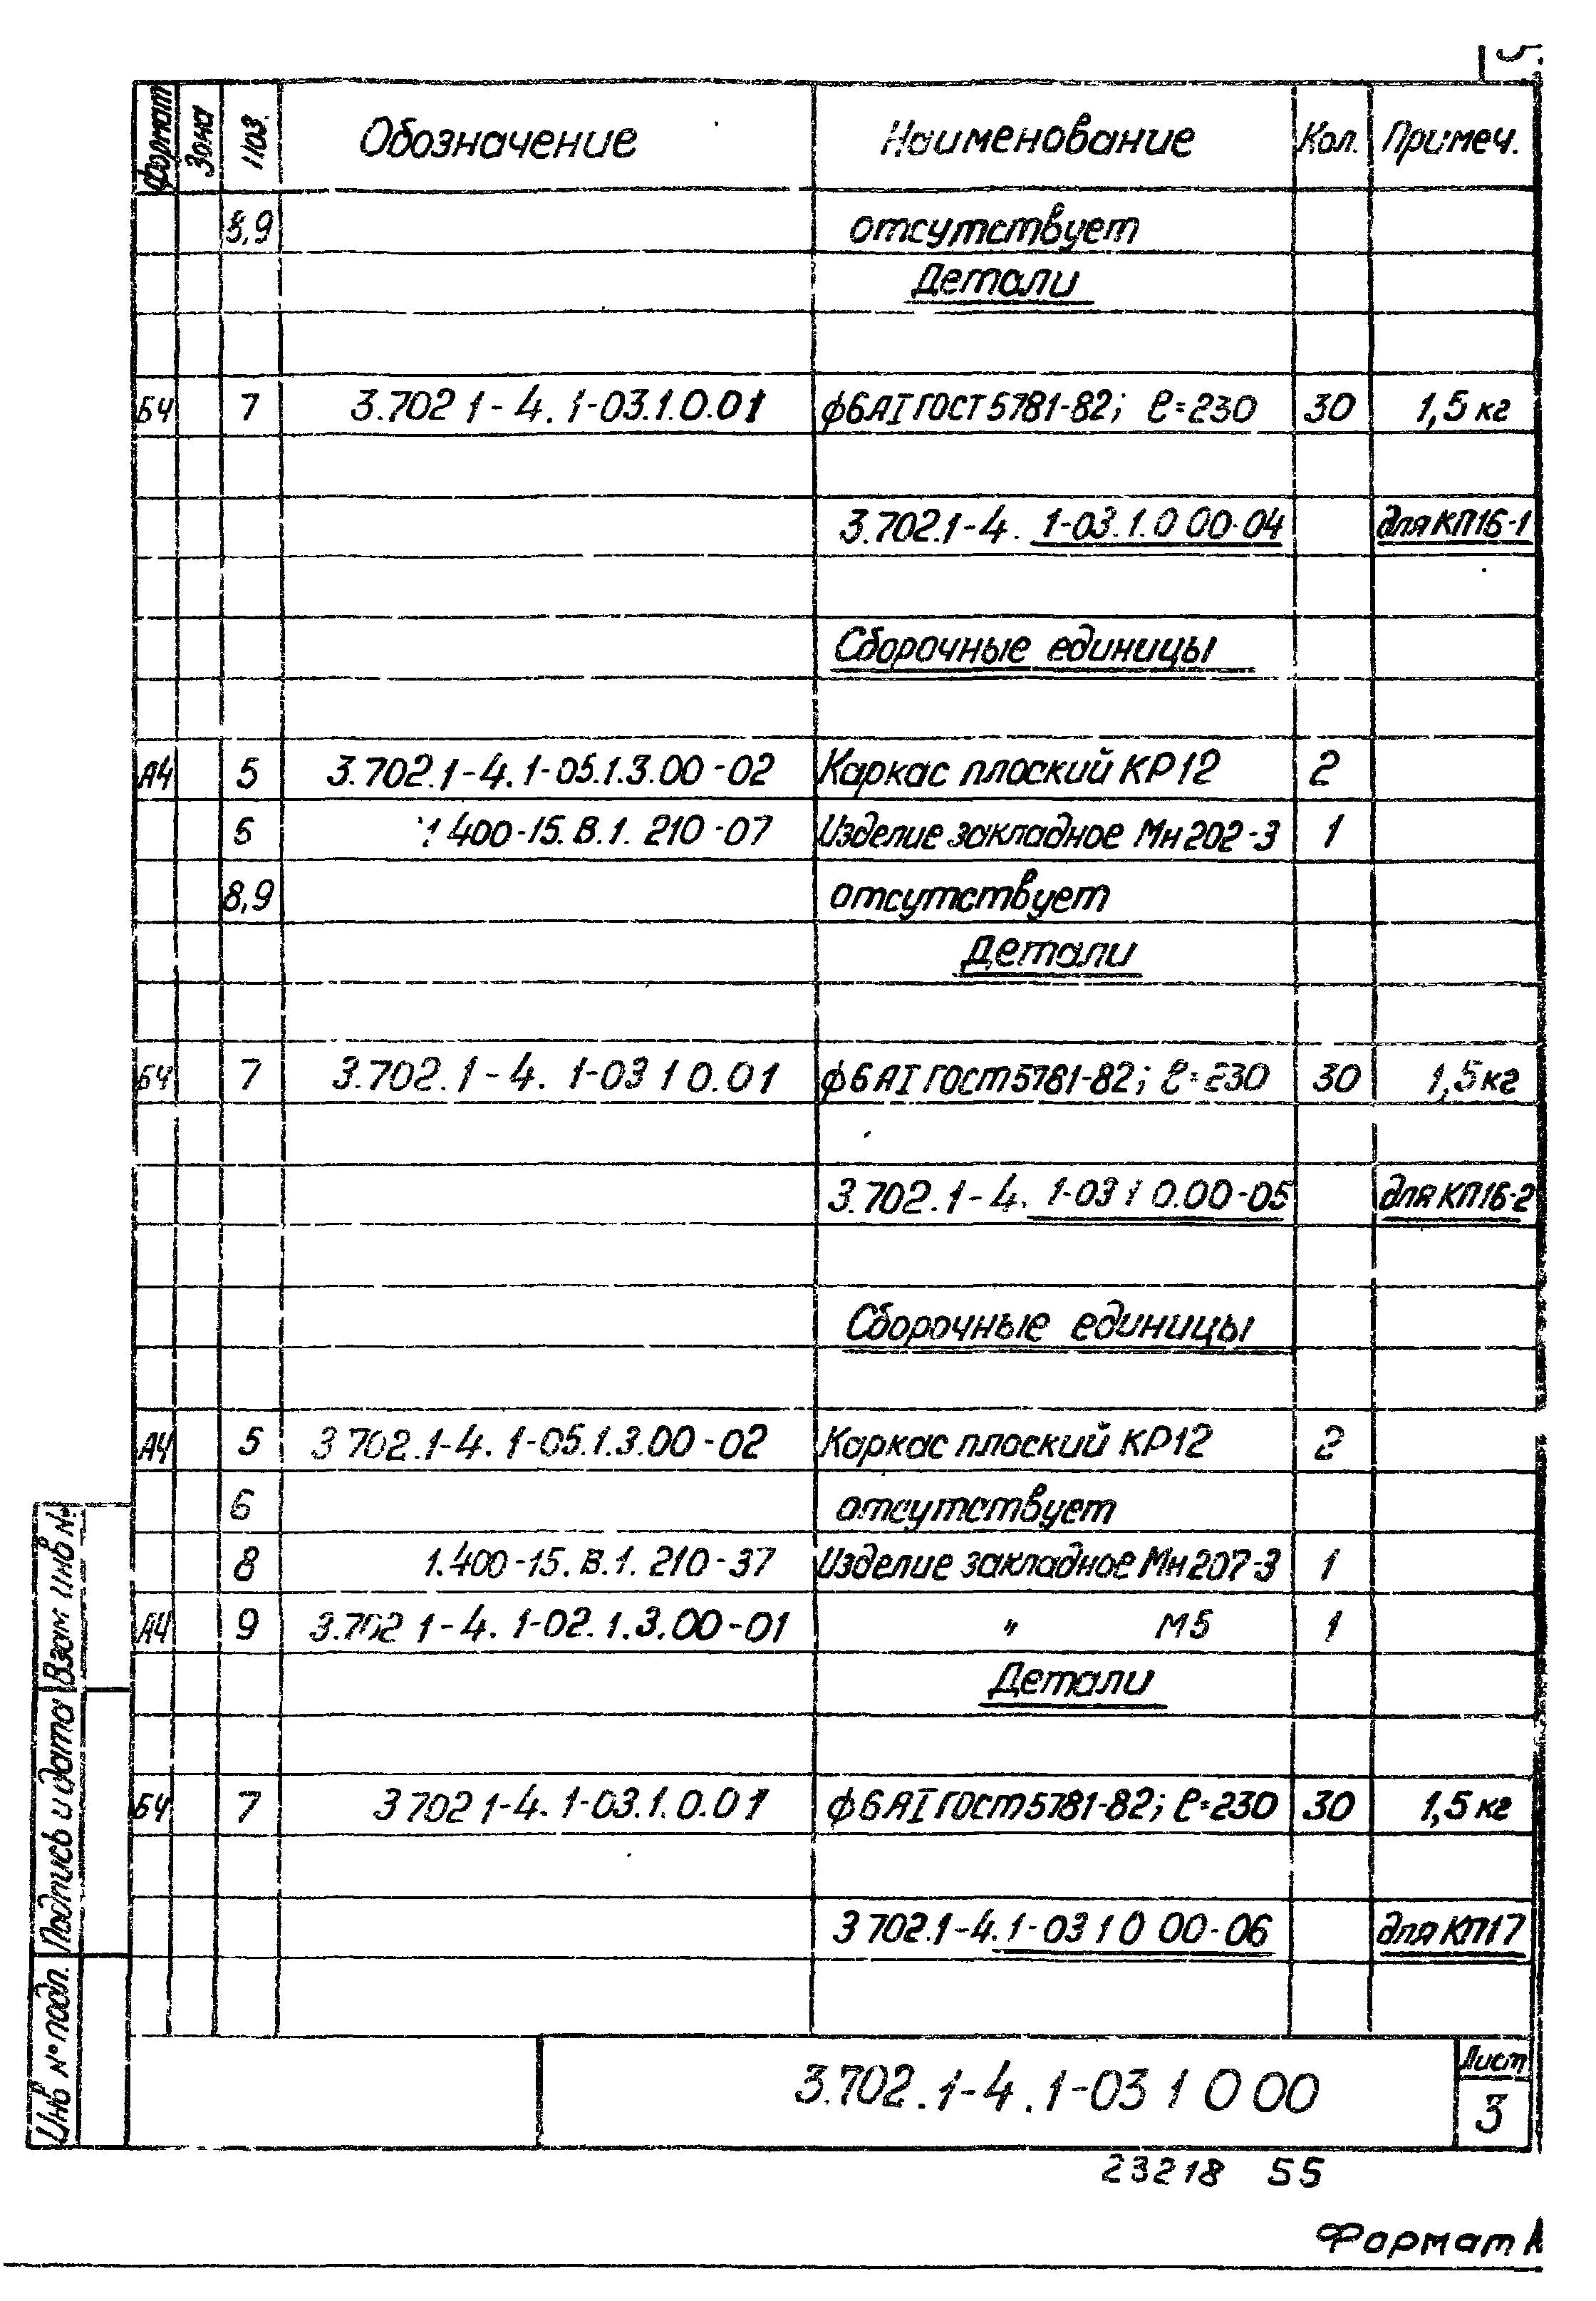 Формат Зона Поз. Обозначение Наименование Кол. Примеч.
8,9 отсутствует
Детали
БЧ 7 3.702 1-4. 1-03.1.0.01 ϕ6АІ ГОСТ 5781-82; ℓ=230 30 1,5 кг
3.702.1-4. 1-03.1.0 00-04 для КП16-1
Сборочные единицы
А4 5 3.702.1-4. 1-05.1.3.00-02 Каркас плоский КР12 2
6 1 400-15.В.1. 210-07 Изделие закладное Мн202-3 1
8,9 отсутствует
Детали
БЧ 7 3.702.1-4. 1-03 1 0.01 ϕ6АІ ГОСТ 5781-82; ℓ=230 30 1,5 кг
3.702.1-4. 1-03 1 0.00-05 для КП16-2
Сборочные единицы
А4 5 3 702.1-4. 1-05.1.3.00-02 Каркас плоский КР12 2
6 отсутствует
8 1.400-15.В.1. 210-37 Изделие закладное Мн207-3 1
А4 9 3.702 1-4. 1-02.1.3.00-01 " М5 1
Детали
БЧ 7 3 702 1-4. 1-03.1.0.01 ϕ6АІ ГОСТ 5781-82; ℓ=230 30 1,5 кг
3 702.1-4. 1-03 1 0 00-06 для КП17
Инв № подл. Подпись и дата Взам инв №
3.702.1-4.1-03 1 0 00
Лист
3
23218 55
Формат